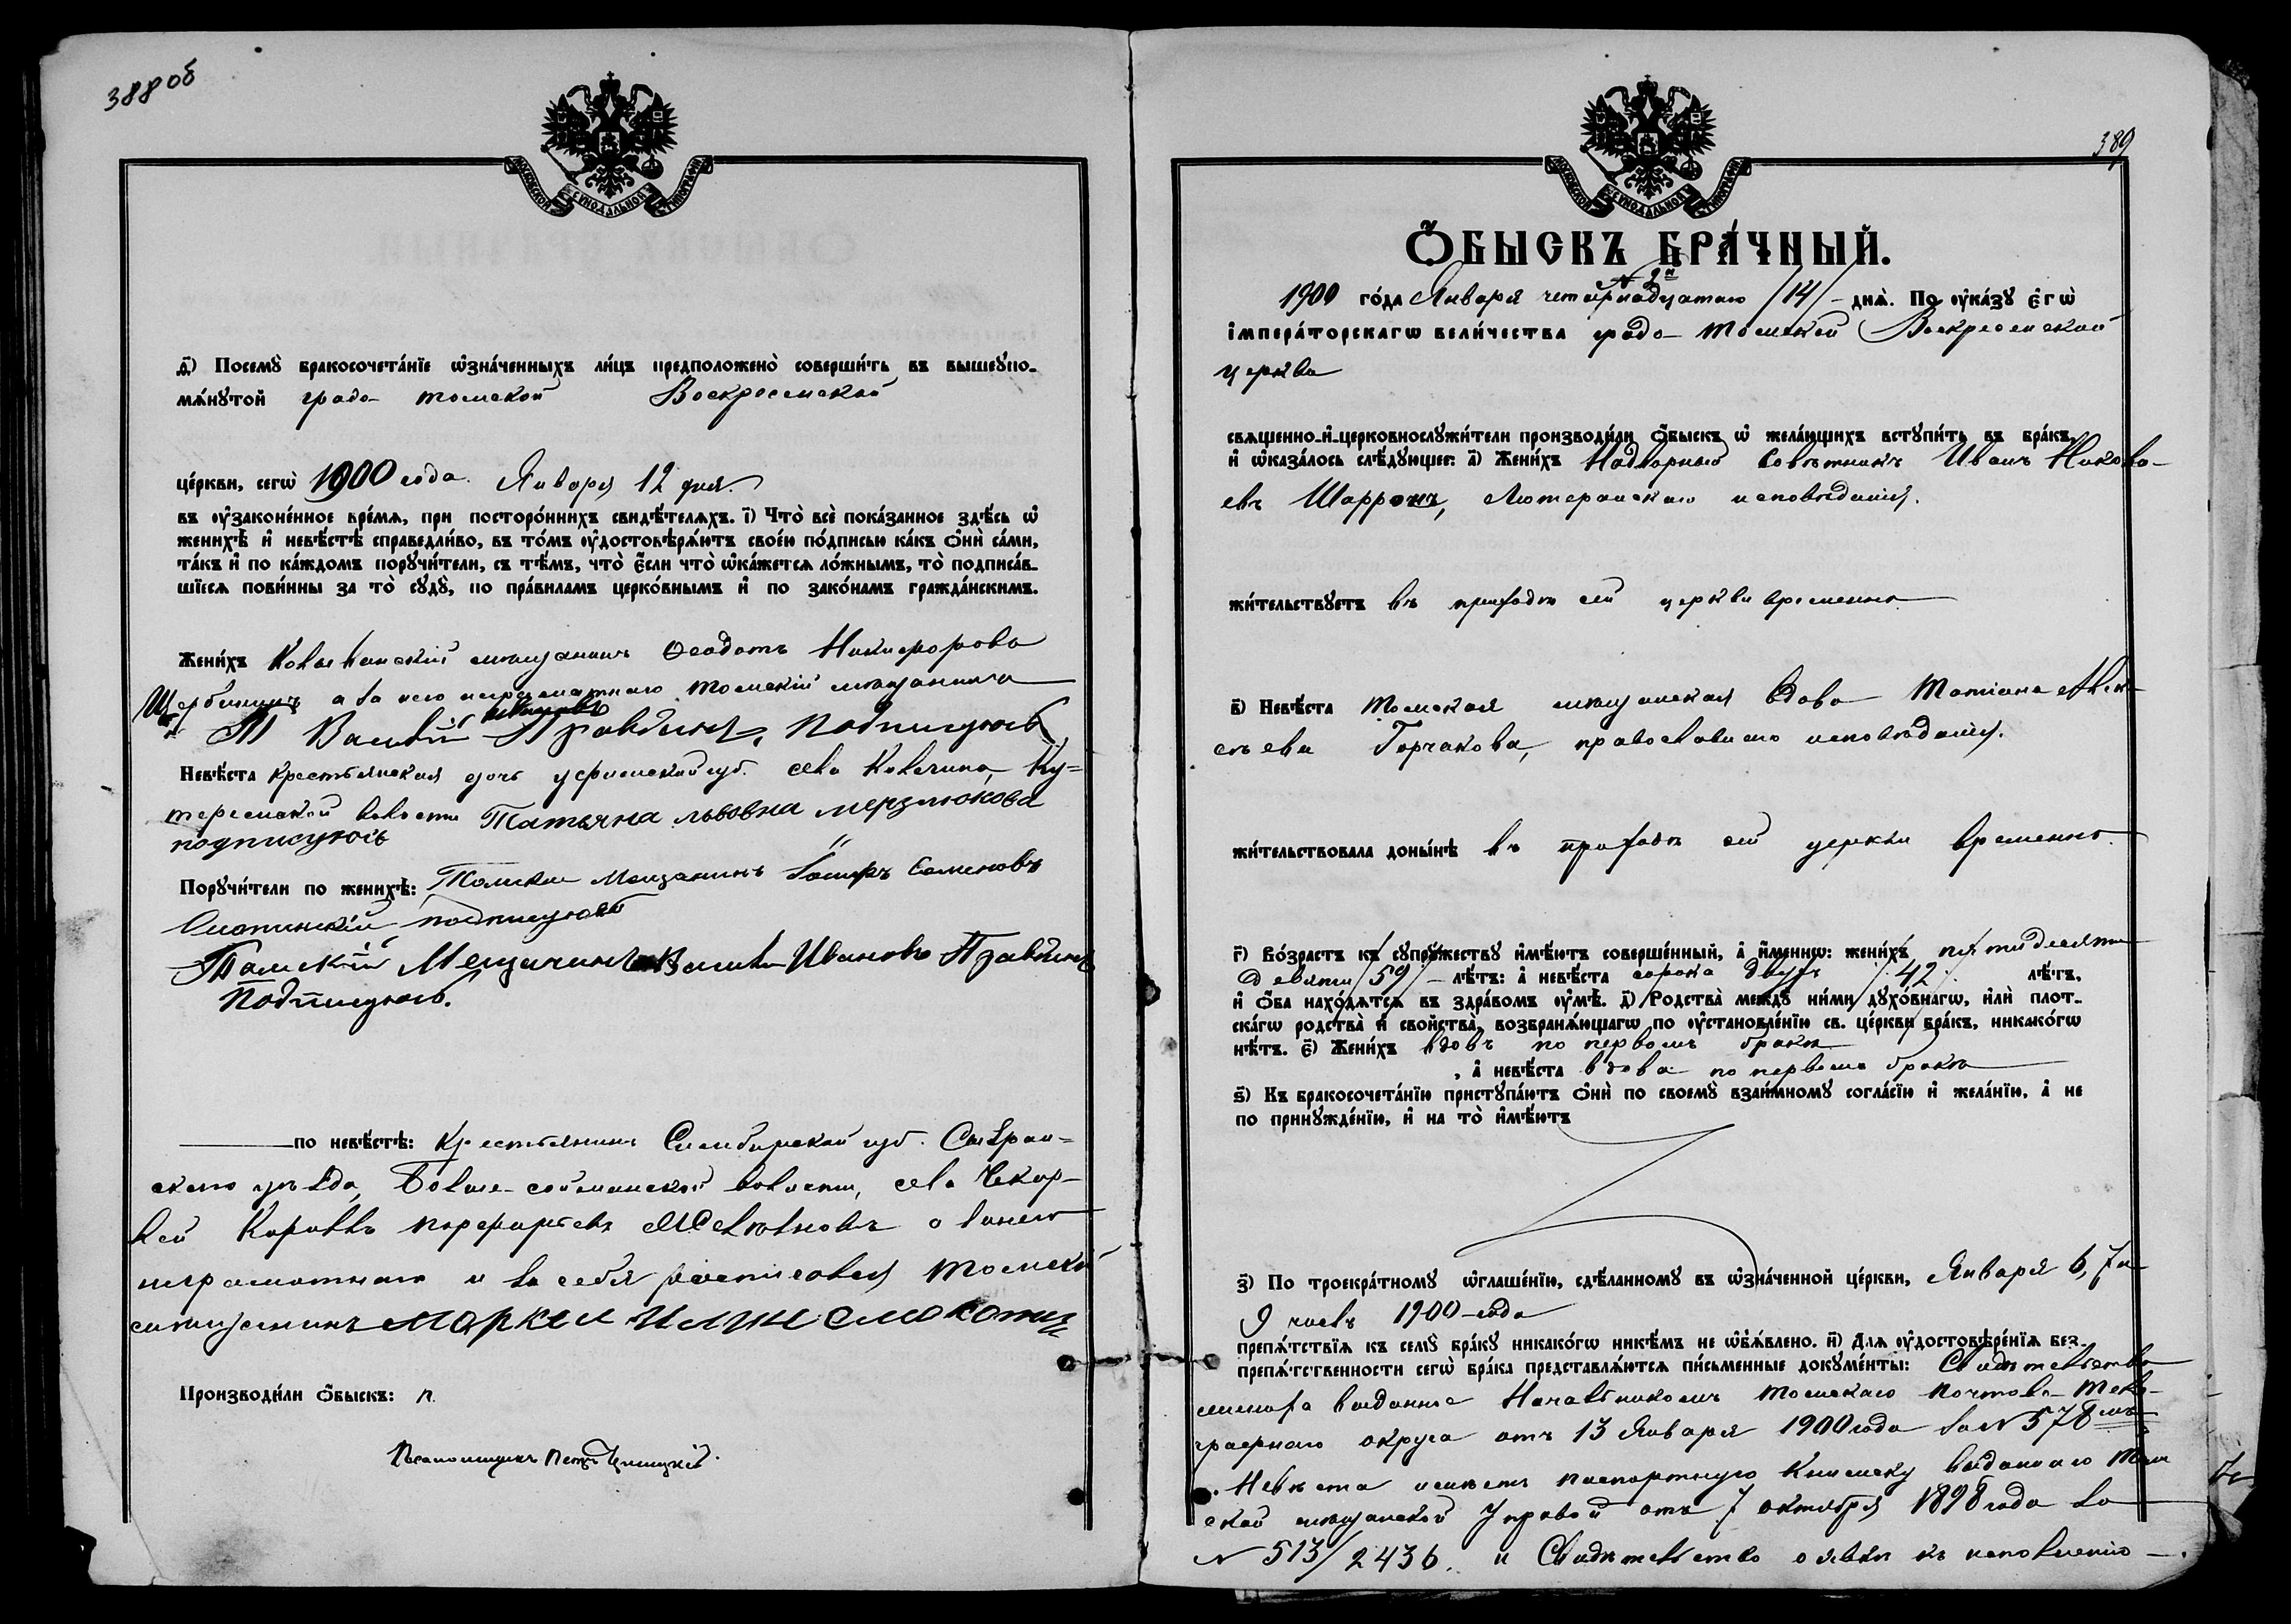 388 об
МОСКОВСКОЙ СѴНОДАЛЬНОЙ ТИПОГРАФІИ
ѳ҃) Посемꙋ̀ бракосочета́нїе ѡ҆зна́ченныхъ ли́цъ предположено̀ соверши́ть въ вышеꙋпо-
мѧ́нꙋтой градо- томской Воскресенской
це́ркви, сегѡ̀ 1900 года. Января 12 дня.
въ ѹ҆зако́ненное вре́мѧ, при посторо́ннихъ свидѣ́телѧхъ. і҃) Что̀ всѐ пока́занное здѣ́сь ѡ҆
женихѣ̀ и҆ невѣ́стѣ справедли́во, въ то́мъ ѹ҆достовѣрѧ́ютъ свое́ю по́дписью ка́къ ѻ҆нѝ са́ми,
та́къ и҆ по ка́ждомъ порꙋчи́тели, съ тѣ́мъ, что̀ є҆́сли что̀ ѡ҆ка́жетсѧ ло́жнымъ, то̀ подписа́в-
шїесѧ пови́нны за то̀ сꙋдꙋ̀, по пра́виламъ церко́внымъ и҆ по зако́намъ гражда́нскимъ.
Жени́хъ Колыванскій мѣщанинъ Ѳеодотъ Никифорова
Щербининъ а за него неграмотнаго томскій мѣщанинъ
Василій Ивановъ Правдинъ, подписуюсь
Невѣ́ста крестьянская дочь уфимской губ. села Ку-
волости Татьяна львовна мерзлюкова
подписуюсь
Порꙋчи́тели по женихѣ̀: Томскій Мещанинъ Семеновъ
подписуюсь
Томскій Мещанинъ Василій Ивановъ Правдинъ
Подписуюсь.
по невѣ́стѣ: Крестьянинъ Симбирской губ. Сызран-
скаго уѣзда, волости, села
а за него
неграмотнаго и за себя росписовался томскій
маркел илин
Производи́ли ѻ҆́быскъ: п.
Псаломщикъ Петръ
389
МОСКОВСКОЙ СѴНОДАЛЬНОЙ ТИПОГРАФІИ
Ѻ҆́БЫСКЪ БРА́ЧНЫЙ.
N 2й
1900 го́да Января четырнадцатаго /14/ - днѧ̀. По ѹ҆ка́зꙋ є҆гѡ̀
і҆мпера́торскагѡ вели́чества градо- томской Воскресенской
церкви
свѧщенно-и҆-церковнослꙋжи́тели производи́ли ѻ҆́быскъ ѡ҆ жела́ющихъ встꙋпи́ть въ бра́къ,
и҆ ѡ҆каза́лось слѣ́дꙋющее: а҃) Жени́хъ Надворный Совѣтникъ Иванъ Никола-
евъ Шарронъ, Лютеранскаго исповѣданія.
жи́тельствꙋетъ въ приходѣ сей церкви временно
в҃) Невѣ́ста томская мѣщанская вдова Татіана Алек-
сѣева Горчакова, православнаго исповѣданія.
жи́тельствовала доны́нѣ въ приходѣ сей церкви временно.
г҃) Во́зрастъ къ сꙋпрꙋ́жествꙋ и҆мѣ́ютъ соверше́нный, а҆ и҆́меннѡ: жени́хъ пятидесяти
девяти /59/ - лѣ́тъ: а҆ невѣ́ста сорока двухъ /42/ лѣ́тъ,
и҆ ѻ҆́ба нахо́дѧтсѧ въ здра́вомъ ѹ҆мѣ̀. д҃) Родства̀ междꙋ̀ ни́ми дꙋхо́внагѡ, и҆лѝ плот-
ска́гѡ родства̀ и҆ свойства̀, возбранѧ́ющагѡ по ѹ҆становле́нїю св. це́ркви бра́къ, никако́гѡ
нѣ́тъ. є҃) Жени́хъ вдовъ по первомъ бракѣ
, а҆ невѣ́ста вдова по первомъ бракѣ
ѕ҃) Къ бракосочета́нїю пристꙋпа́ютъ ѻ҆нѝ по своемꙋ̀ взаи́мномꙋ согла́сїю и҆ жела́нїю, а҆ не
по принꙋжде́нїю, и҆ на то̀ и҆мѣ́ютъ
з҃) По троекра́тномꙋ ѡ҆глаше́нїю, сдѣ́ланномꙋ въ ѡ҆зна́ченной це́ркви, Января 6, 7 и
9 числъ 1900 года
препѧ́тствїѧ къ семꙋ̀ бра́кꙋ никако́гѡ никѣ́мъ не ѡ҆бъѧ́влено. и҃) Длѧ ѹ҆достовѣре́нїѧ без-
препѧ́тственности сегѡ̀ бра́ка представлѧ́ютсѧ пи́сьменные докꙋме́нты: Свидѣтельство
жениха выданное Начальникомъ томскаго почтово- теле-
графнаго округа отъ 13 Января 1900 года за N 578мъ
. Невѣста имѣетъ паспортную книжку выданную том
ской мѣщанской Управой отъ 7 октября 1898 года за
N 513/2436. и Свидѣтельство о явкѣ къ исполненію